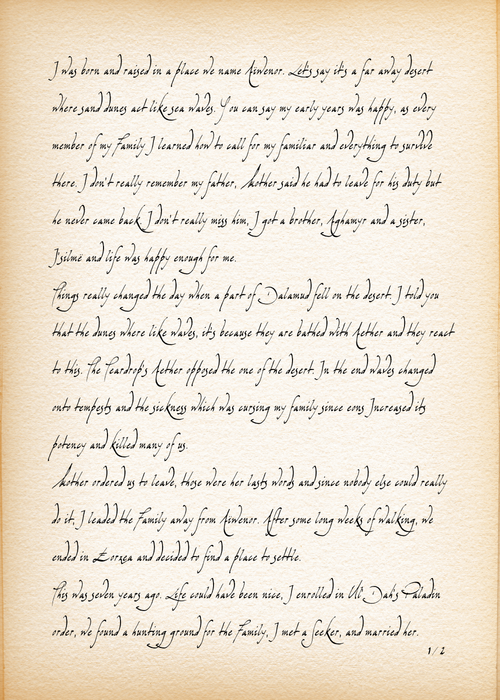 I was born and raised in a place we name Aiwenor. Let's say it's a far away desert
where sand dunes act like sea waves. You can say my early years was happy, as every
member of my Family I learned how to call for my familiar and everything to survive
there. I don't really remember my father, Mother said he had to leave for his duty but
he never came back. I don't really miss him, I got a brother, Aghamyr and a sister,
Itsilmë and life was happy enough for me.
Things really changed the day when a part of Dalamud fell on the desert. I told you
that the dunes where like waves, it's because they are bathed with Aether and they react
to this. The Teardrop's Aether opposed the one of the desert. In the end waves changed
onto tempests and the sickness which was cursing my family since eons Increased its
potency and killed many of us.
Mother ordered us to leave, those were her lasts words and since nobody else could really
do it, I leaded the Family away from Aiwenor. After some long weeks of walking, we
ended in Eorzea and decided to find a place to settle.
This was seven years ago. Life could have been nice, I enrolled in Ul' Dah's Paladin
order, we found a hunting ground for the Family, I met a Seeker, and married her.
1 / 2